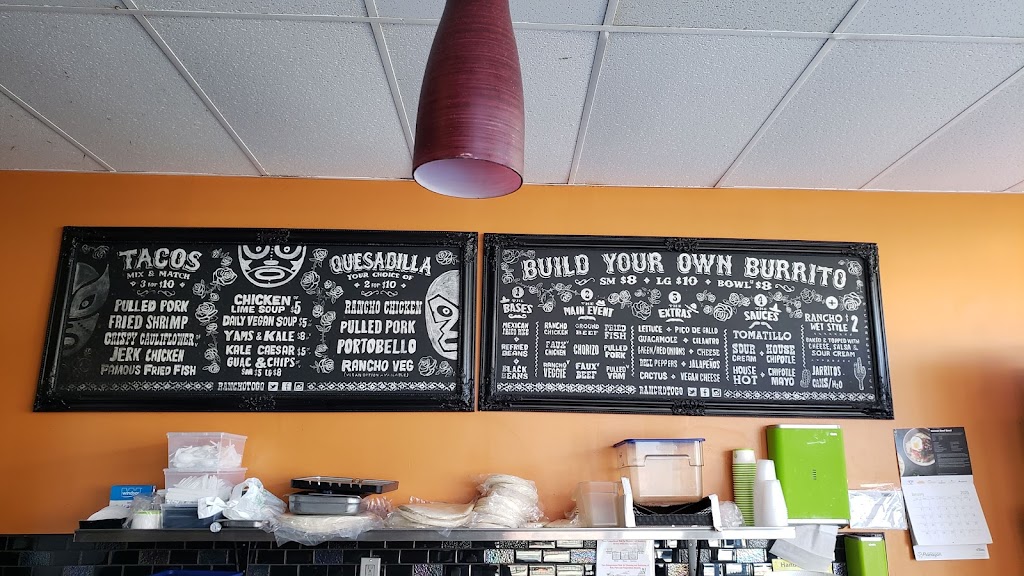 TACOS
MIX & MATCH
3 FOR $10
PULLED PORK
FRIED SHRIMP
CRISPY CAULIFLOWER
JERK CHICKEN
FAMOUS FRIED FISH
CHICKEN
LIME SOUP $5
DAILY VEGAN SOUP $5
YAMS & KALE $8
KALE CAESAR $5
GUAC & CHIPS
SM $5 LG $8
QUESADILLA
YOUR CHOICE OF
2 FOR $10
RANCHO CHICKEN
PULLED PORK
PORTOBELLO
RANCHO VEG
RANCHOTOGO
BUILD YOUR OWN BURRITO
SM $8 + LG $10 + BOWL $8
1
BASES
MEXICAN
FRIED RICE
+
REFRIED
BEANS
+
BLACK
BEANS
2
MAIN EVENT
RANCHO
CHICKEN
"FAUX"
CHICKEN
RANCHO
VEGGIE
GROUND
BEEF
CHORIZO
"FAUX"
BEEF
FRIED
FISH
PULLED
PORK
PULLED
YAM
3
EXTRAS
LETTUCE + PICO DE GALLO
GUACAMOLE + CILANTRO
GREEN/RED ONIONS + CHEESE
BELL PEPPERS + JALAPEÑOS
CACTUS + VEGAN CHEESE
4
SAUCES
TOMATILLO
SOUR CREAM + HOUSE CHIPOTLE
HOUSE HOT + CHIPOTLE MAYO
+
RANCHO $
WET STYLE 2
BAKED & TOPPED WITH
CHEESE, SALSA &
SOUR CREAM
JARRITOS
CANS/H2O
RANCHOTOGO